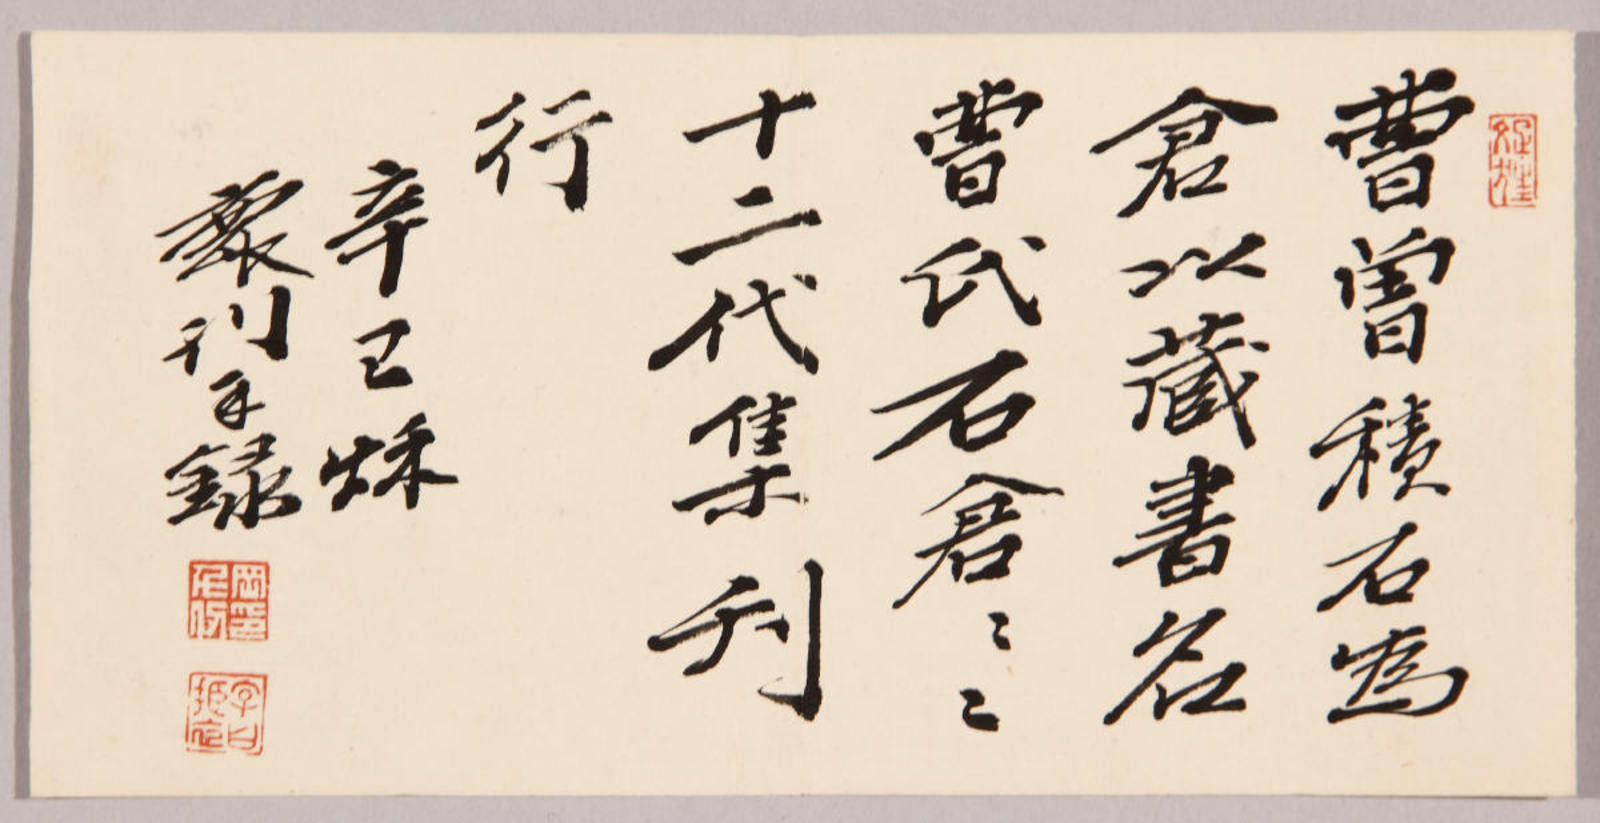 曹曾積石為
倉以藏書名
曹氏石倉〻〻
十二代集刊
行
辛巳秋
刊手錄